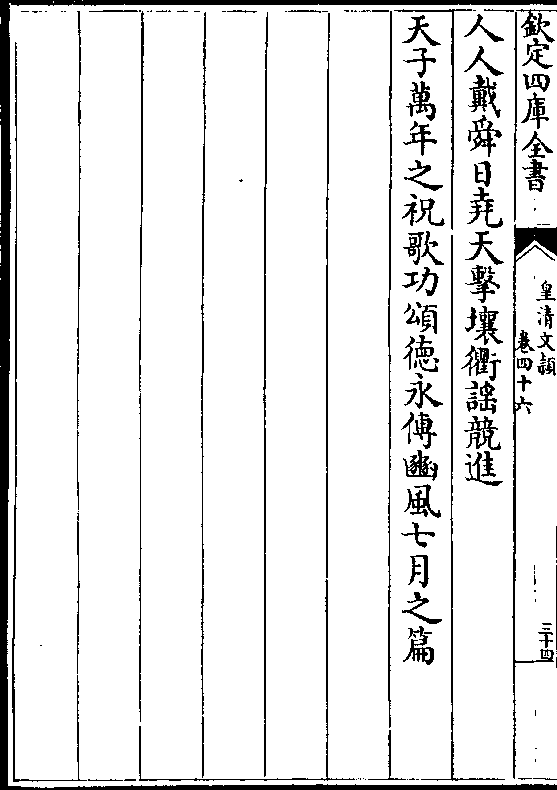 欽定四庫全書
皇清文穎
卷四十六
三十四
人人戴舜日堯天擊壤衢謡競進
天子萬年之祝歌功頌德永傳豳風七月之篇